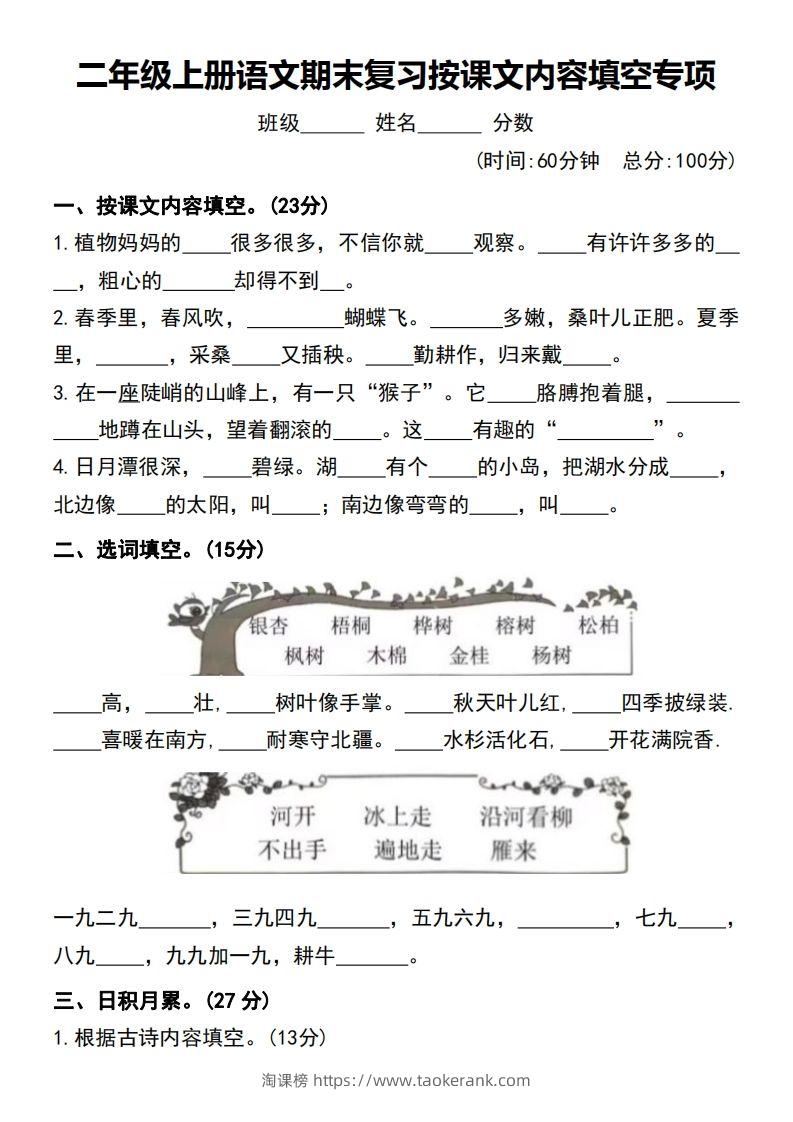 二年级上册语文期末复习按课文内容填空专项
班级______ 姓名______ 分数
(时间:60分钟 总分:100分)
一、按课文内容填空。(23分)
1.植物妈妈的____很多很多，不信你就____观察。____有许许多多的__
__，粗心的______却得不到__。
2.春季里，春风吹，________蝴蝶飞。______多嫩，桑叶儿正肥。夏季
里，______，采桑____又插秧。____勤耕作，归来戴____。
3.在一座陡峭的山峰上，有一只“猴子”。它____胳膊抱着腿，______
____地蹲在山头，望着翻滚的____。这____有趣的“________”。
4.日月潭很深，____碧绿。湖____有个____的小岛，把湖水分成____，
北边像____的太阳，叫____；南边像弯弯的____，叫____。
二、选词填空。(15分)
银杏 梧桐 桦树 榕树 松柏
枫树 木棉 金桂 杨树
____高，____壮,____树叶像手掌。____秋天叶儿红,____四季披绿装.
____喜暖在南方,____耐寒守北疆。____水杉活化石,____开花满院香.
河开 冰上走 沿河看柳
不出手 遍地走 雁来
一九二九______，三九四九______，五九六九，________，七九____，
八九____，九九加一九，耕牛______。
三、日积月累。(27 分)
1.根据古诗内容填空。(13分)
淘课榜 https://www.taokerank.com